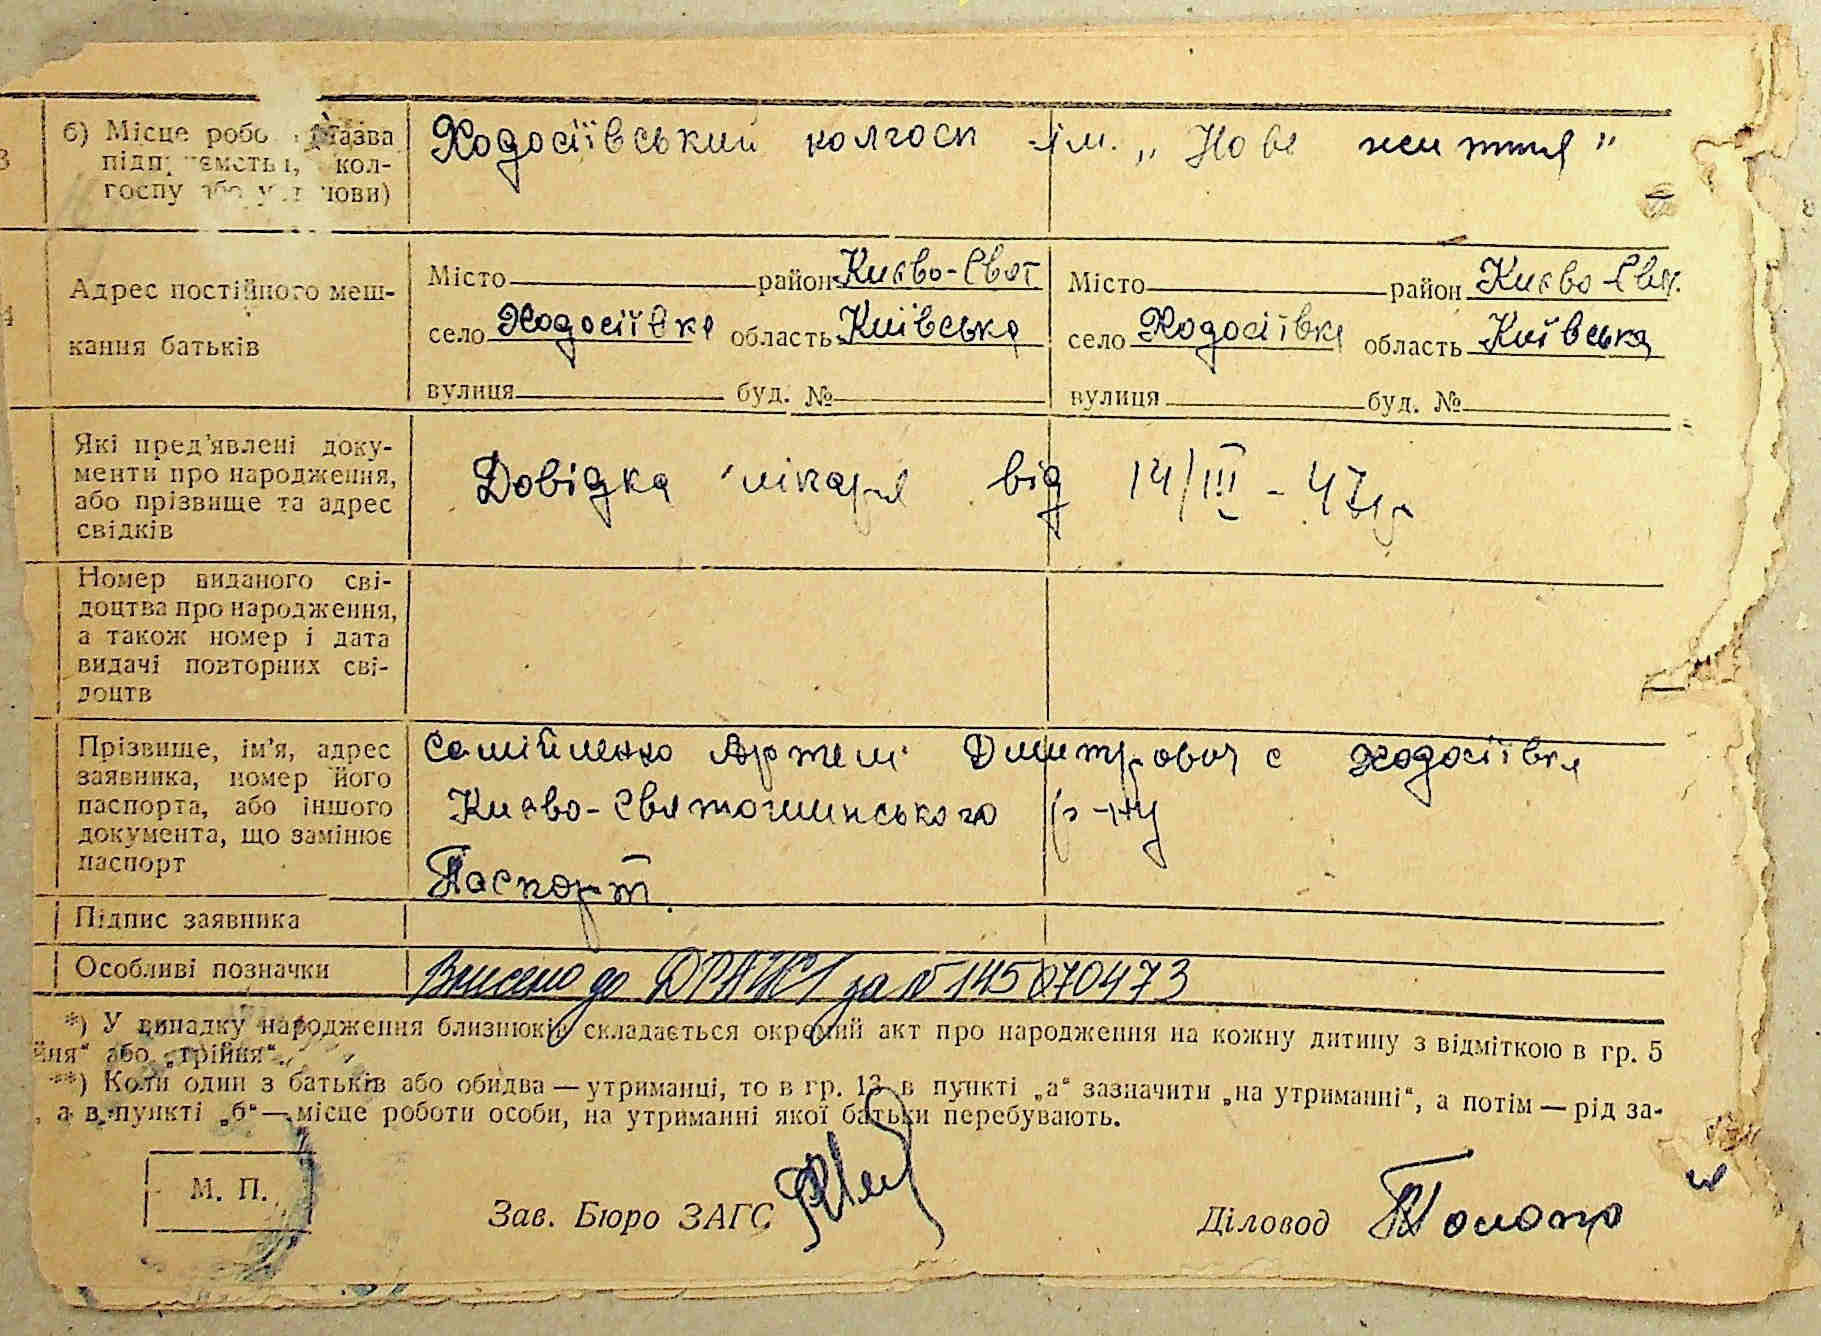 3
б) Місце робо назва
підпр ємств, кол-
госпу або у нови)
Ходосіївський колгосп ім. „Нове життя"
4
Адрес постійного меш-
кання батьків
Місто район Києво-Свят
село Ходосіївка область Київська
вулиця буд. №
Місто район Києво-Свят.
село Ходосіївка область Київська
вулиця буд. №
Які пред'явлені доку-
менти про народження,
або прізвище та адрес
свідків
Довідка лікаря від 14/III - 47 р
Номер виданого сві-
доцтва про народження,
а також номер і дата
видачі повторних сві-
доцтв
Прізвище, ім'я, адрес
заявника, номер його
паспорта, або іншого
документа, що замінює
паспорт
Самійленко Артем Дмитрович с Ходосіївка
Києво-Святошинського р-ну
Паспорт.
Підпис заявника
Особливі позначки
Внесено до ДРАЦС за № 145070473
*) У випадку народження близнюків складається окремий акт про народження на кожну дитину з відміткою в гр. 5
йня" або „трійня".
**) Коли один з батьків або обидва — утриманці, то в гр. 13 в пункті „а" зазначити „на утриманні", а потім — рід за-
, а в пункті „б" — місце роботи особи, на утриманні якої батьки перебувають.
М. П.
Зав. Бюро ЗАГС
Діловод